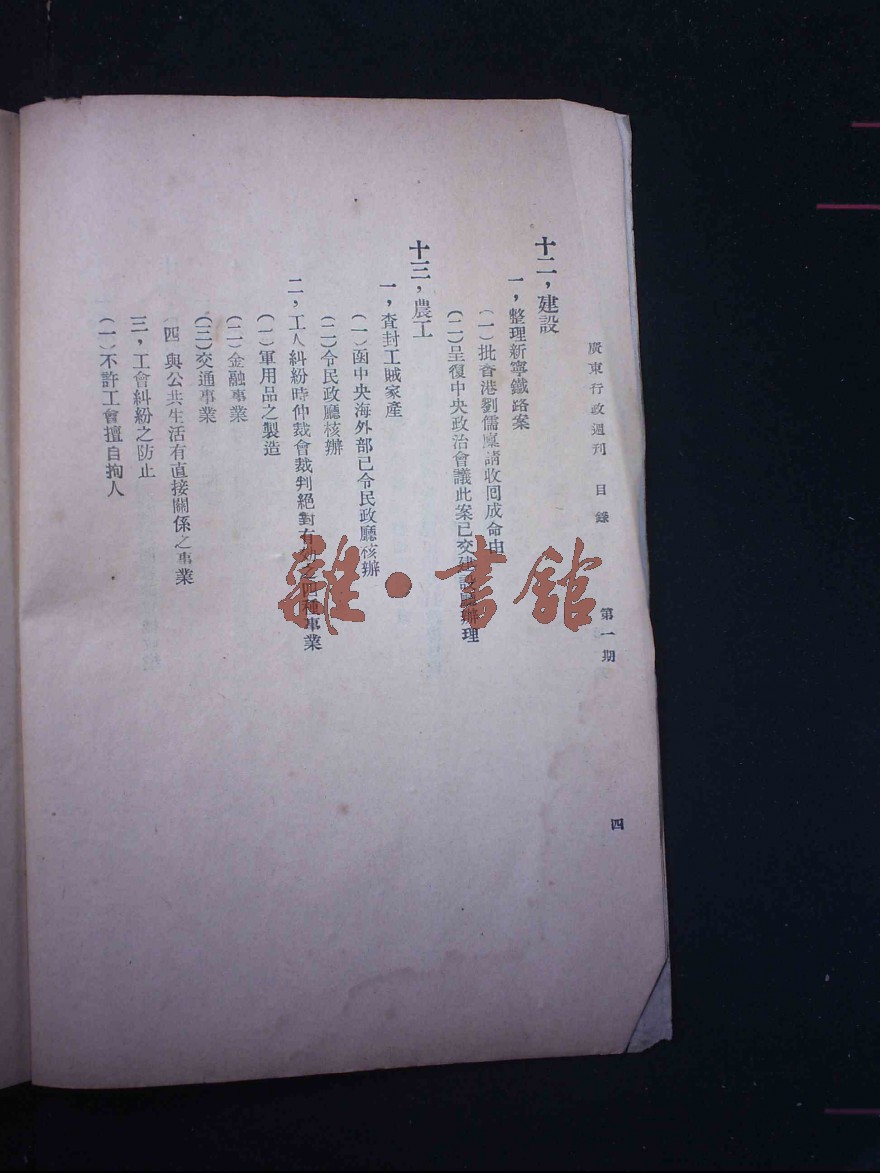 廣東行政週刊 目錄 第一期 四
十二，建設
一，整理新寧鐵路案
（一）批香港劉儒稟請收回成命由
（二）呈復中央政治會議此案已交建設廳辦理
十三，農工
一，查封工賊家產
（一）函中央海外部已令民政廳核辦
（二）令民政廳核辦
二，工人糾紛時仲裁會裁判絕對有効之四種事業
（一）軍用品之製造
（二）金融事業
（三）交通事業
（四 與公共生活有直接關係之事業
三，工會糾紛之防止
（一）不許工會擅自拘人
雜·書館